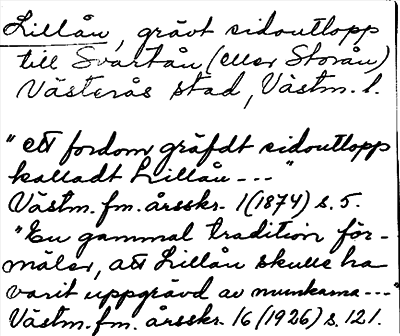 Lillån, grävt sidoutlopp
till Svartån (eller Storån)
Västerås stad, Västm. l.
"ett fordom gräfdt sidoutlopp
kalladt Lillån ---"
Västm. fm. årsskr. 1 (1874) s. 5.
"En gammal tradition för-
mäler, att Lillån skulle ha
varit uppgrävd av munkarna ---"
Västm. fm. årsskr. 16 (1926) s. 121.